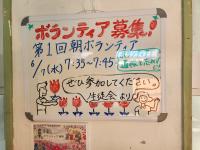 ボランティア募集!
第1回朝ボランティア
6/7(水)7:35~7:45
ぜひ参加してください。
生徒会より